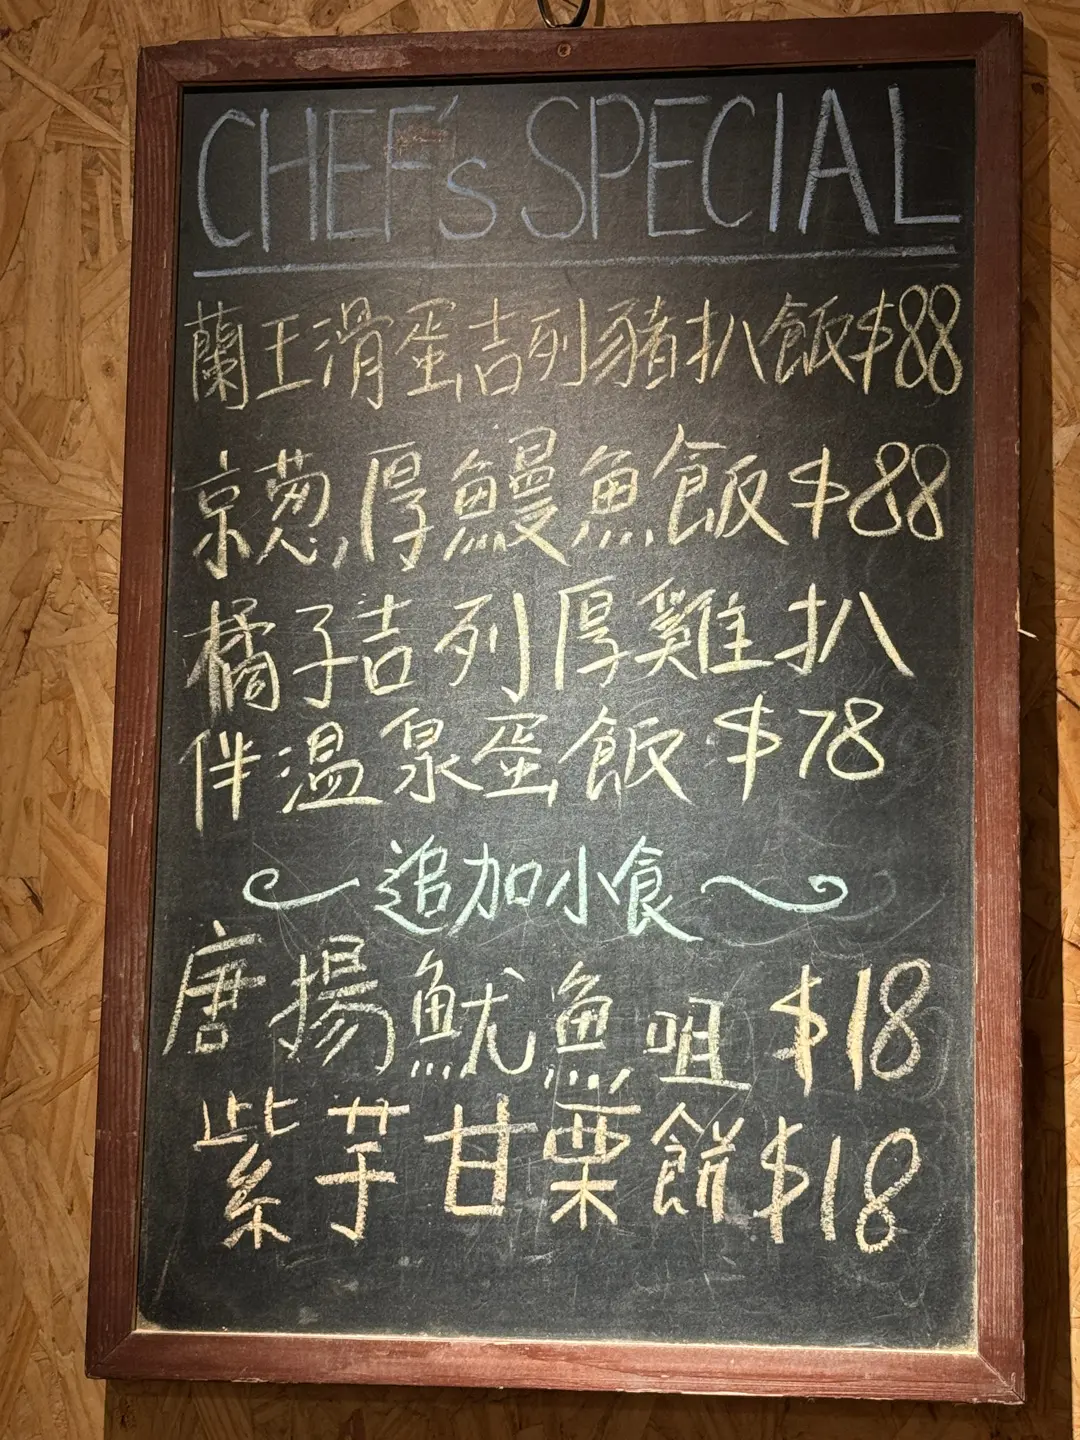 CHEF's SPECIAL
蘭王滑蛋吉列豬扒飯$88
京葱厚鰻魚飯$88
橘子吉列厚雞扒
伴溫泉蛋飯$78
追加小食
唐揚魷魚咀$18
紫芋甘栗餅$18